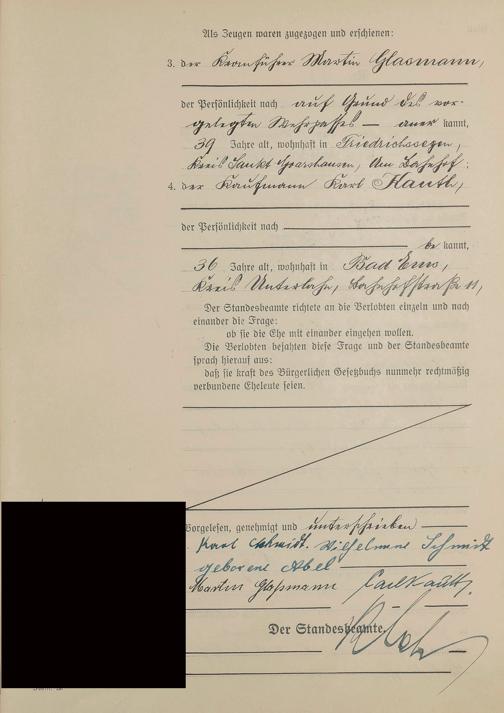 Als Zeugen waren zugezogen und erschienen:
3. der Kranführer Martin Glasmann,
der Persönlichkeit nach auf Grund des vor-
gelegten Wehrpasses — aner kannt,
39 Jahre alt, wohnhaft in Friedrichssegen,
Kreis Sankt Goarshausen, Am Bahnhof;
4. der Kaufmann Karl Kauth,
der Persönlichkeit nach
be kannt,
36 Jahre alt, wohnhaft in Bad Ems,
Kreis Unterlahn, Bahnhofstraße 11,
Der Standesbeamte richtete an die Verlobten einzeln und nach
einander die Frage:
ob sie die Ehe mit einander eingehen wollen.
Die Verlobten bejahten diese Frage und der Standesbeamte
sprach hierauf aus:
daß sie kraft des Bürgerlichen Gesetzbuchs nunmehr rechtmäßig
verbundene Eheleute seien.
Vorgelesen, genehmigt und unterschrieben
Karl Schmidt. Wilhelmine Schmidt
geborene Abel
Martin Glaßmann Carl Kauth.
Der Standesbeamte.